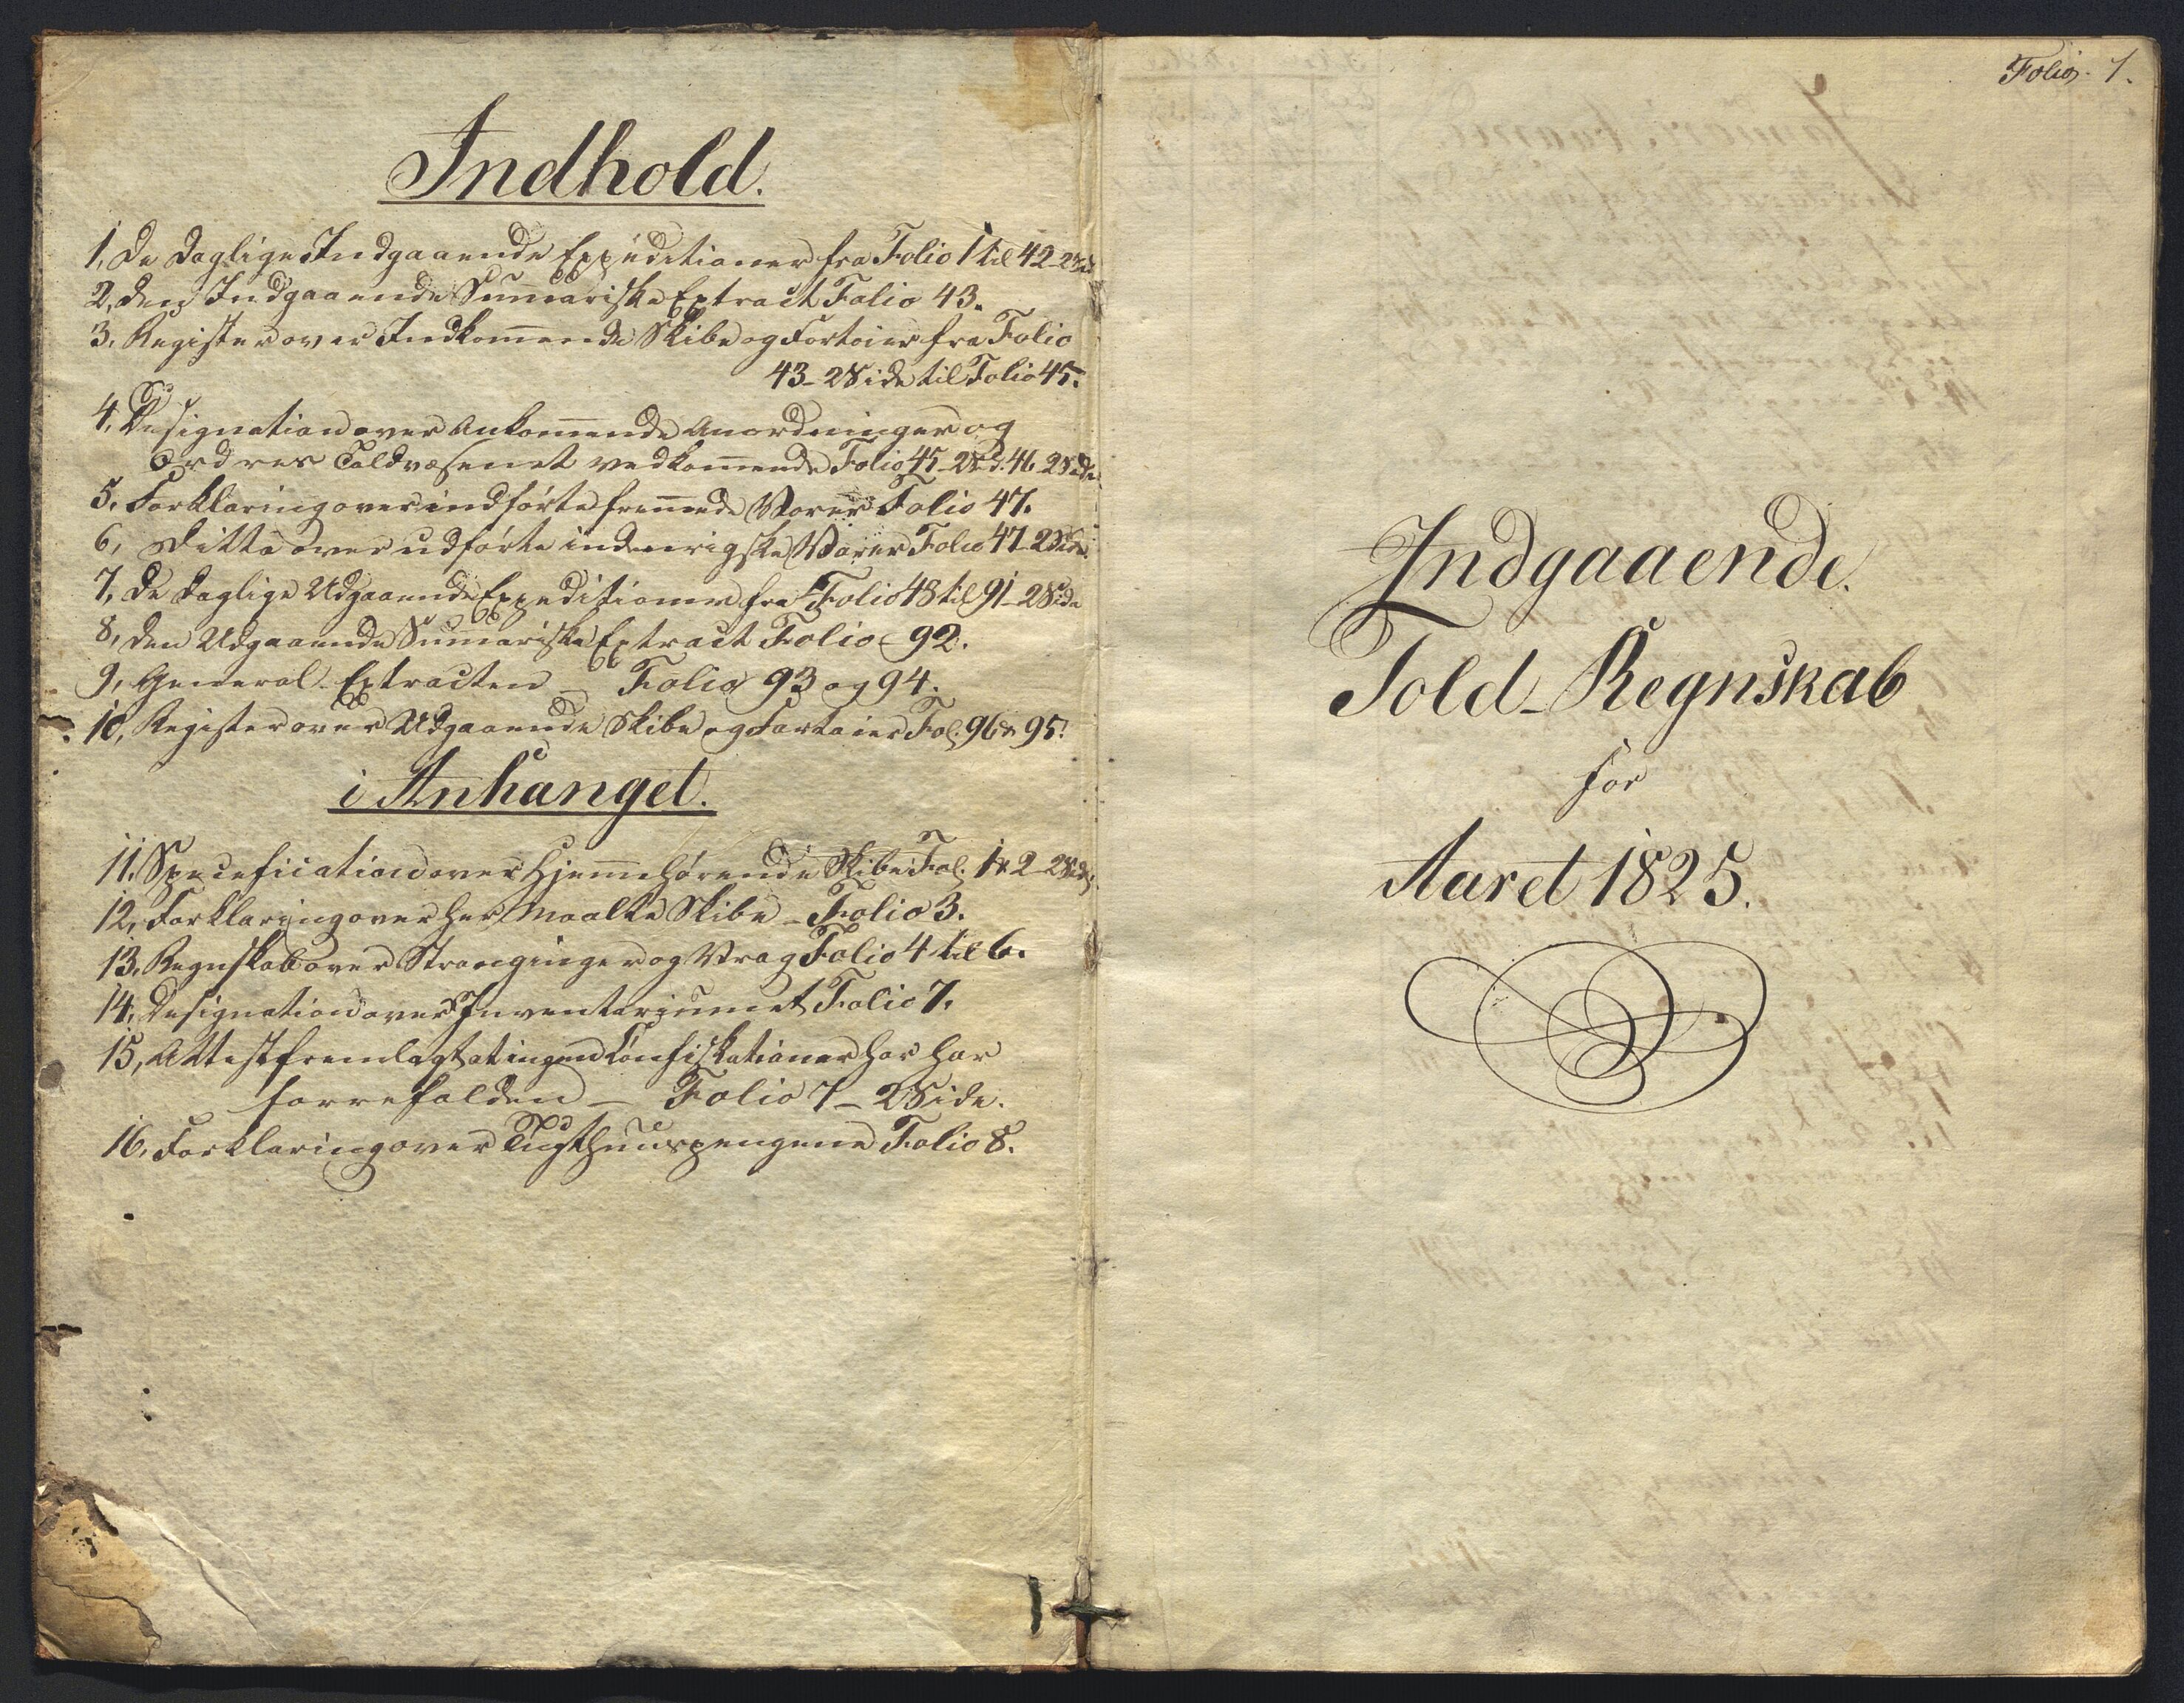 Indhold.
1, De Daglige Indgaaende Expeditioner fra Folio 1 til 42_2Side
2, Den Indgaaende Sum̄ariske Extract Folio 43.
3, Register over Indkom̄ende Skibe og Fartoier fra Folio
43_2Side til Folio 45.
4, Designation over Ankom̄ende Anordninger og
Ordres Toldvæsenet vedkom̄ende Folio 45_2S. d. 46_2Side
5, Forklaring over indførte frem̄ede Varer Folio 47.
6, Ditto over udførte indenrigske Varer Folio 47_2Side.
7, De Daglige Udgaaende Expeditioner fra Folio 48 til 91_2Side
8, Den Udgaaende Sum̄ariske Extract Folio 92.
9, General_Extracten _ Folio 93 og 94.
10, Register over Udgaaende Skibe og Fartoier Fol. 96 & 95.
i Anhanget.
11. Speceficatiod over Hjem̄ehørende Skibe Fol. 1 & 2_2Side.
12, Forklaring over her maalte Skibe _ Folio 3.
13, Regnskab over Strandinger og Vrag Folio 4 til 6.
14, Designation over Inventariumet Folio 7.
15, Attest fremlagt at ingen Confiskationer har her
forrefalden _ Folio 7_2Side.
16, Forklaring over Tugthuuspengene Folio 8.
Folio. 1.
Indgaaende.
Told_Regnskab
for
Aaret 1825.